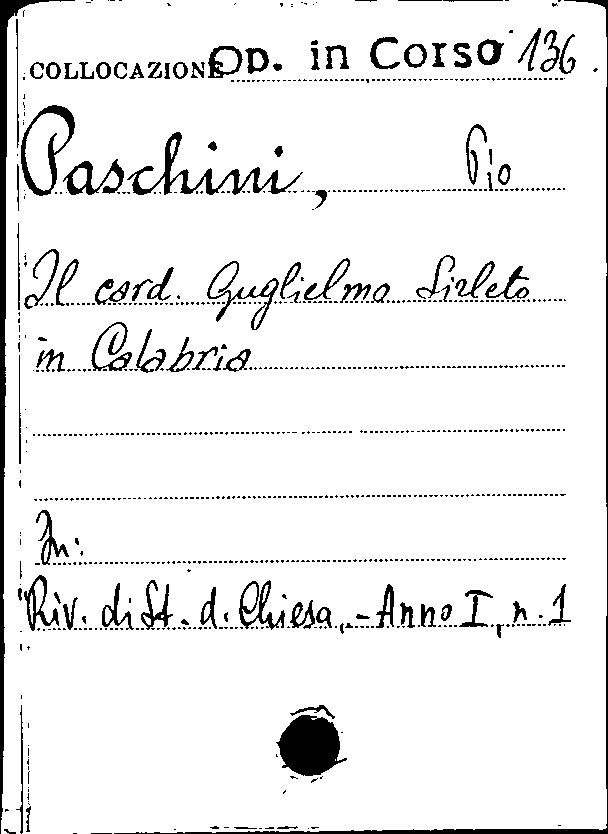 COLLOCAZIONE Op. in Corso 136.
Paschini, Pio
Il card. Guglielmo Sirleto
in Calabria
In:
Riv. di St. d. Chiesa, - Anno I, n. 1